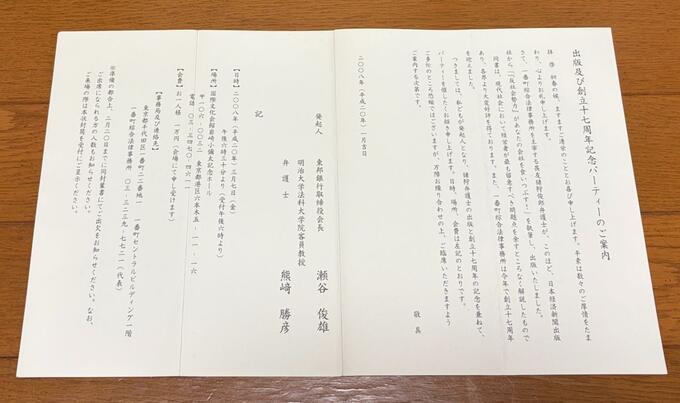 出版及び創立十七周年記念パーティーのご案内
拝啓 初春の候、ますますご清栄のこととお喜び申し上げます。平素は数々のご厚情をたま
わり、心よりお礼申し上げます。
さて、一番町綜合法律事務所を主宰する長友諸狩俊郎弁護士が、このほど、日本経済新聞出版
社から「『反社会勢力』があなたの会社を食いつぶす!」を執筆し、出版いたしました。
同書は、現代社会において経営者が最も留意すべき問題点を余すところなく解説したもので
あり、各界より大変好評を得ております。また、一番町綜合法律事務所は今年で創立十七周年
を迎えました。
つきましては、私どもが発起人となり、諸狩弁護士の出版と創立十七周年の記念を兼ねて、
パーティーを催したくお願い申し上げます。日時、場所、会費は左記のとおりです。
ご多忙のところ恐縮ではございますが、万障お繰り合わせの上、ご臨席いただきますよう
ご案内する次第です。
敬具
二〇〇八年(平成二〇年)一月吉日
発起人
東邦銀行取締役会長 瀬谷 俊雄
明治大学法科大学院客員教授
弁護士 熊﨑 勝彦
記
【日時】二〇〇八年(平成二〇年)三月七日(金)
午後六時三十分より(受付午後六時より)
【場所】国際文化会館岩崎小彌太記念ホール
〒一〇六-〇〇三二 東京都港区六本木五-一一-一六
電話 〇三-三四七〇-四六一一
【会費】お一人様 一万円(会場にて申し受けます)
【事務局及び連絡先】
東京都千代田区一番町二二番地一 一番町セントラルビルディング一階
一番町綜合法律事務所 〇三-三二三九-七七二一(代表)
※準備の都合上、二月二〇日までに同封葉書にてご出欠をお知らせください。
ご出席になられる方の人数もお知らせください。なお、
ご来場の際は本状封筒を受付にご呈示ください。